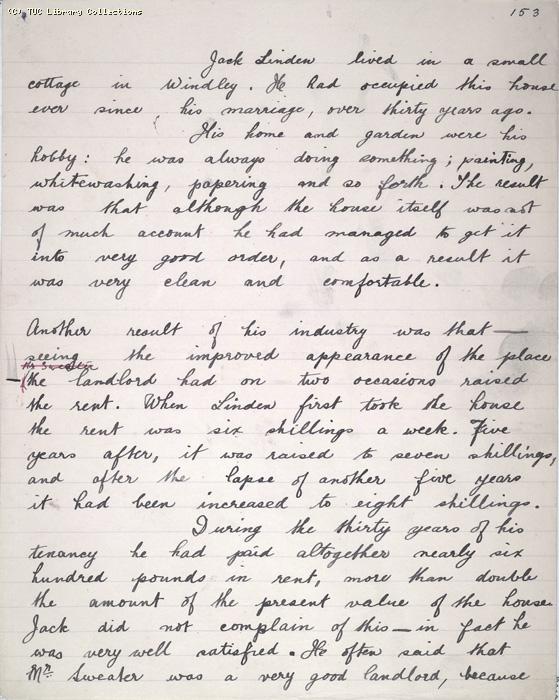 (C) TUC Library Collections
153
Jack Linden lived in a small
cottage in Windley. He had occupied this house
ever since his marriage, over thirty years ago.
His home and garden were his
hobby: he was always doing something; painting,
whitewashing, papering and so forth. The result
was that although the house itself was not
of much account he had managed to get it
into very good order, and as a result it
was very clean and comfortable.
Another result of his industry was that —
seeing the improved appearance of the place
Mr Sweater
— (the landlord had on two occasions raised
the rent. When Linden first took the house
the rent was six shillings a week. Five
years after, it was raised to seven shillings,
and after the lapse of another five years
it had been increased to eight shillings.
During the thirty years of his
tenancy he had paid altogether nearly six
hundred pounds in rent, more than double
the amount of the present value of the house.
Jack did not complain of this — in fact he
was very well satisfied. He often said that
Mr. Sweater was a very good landlord, because